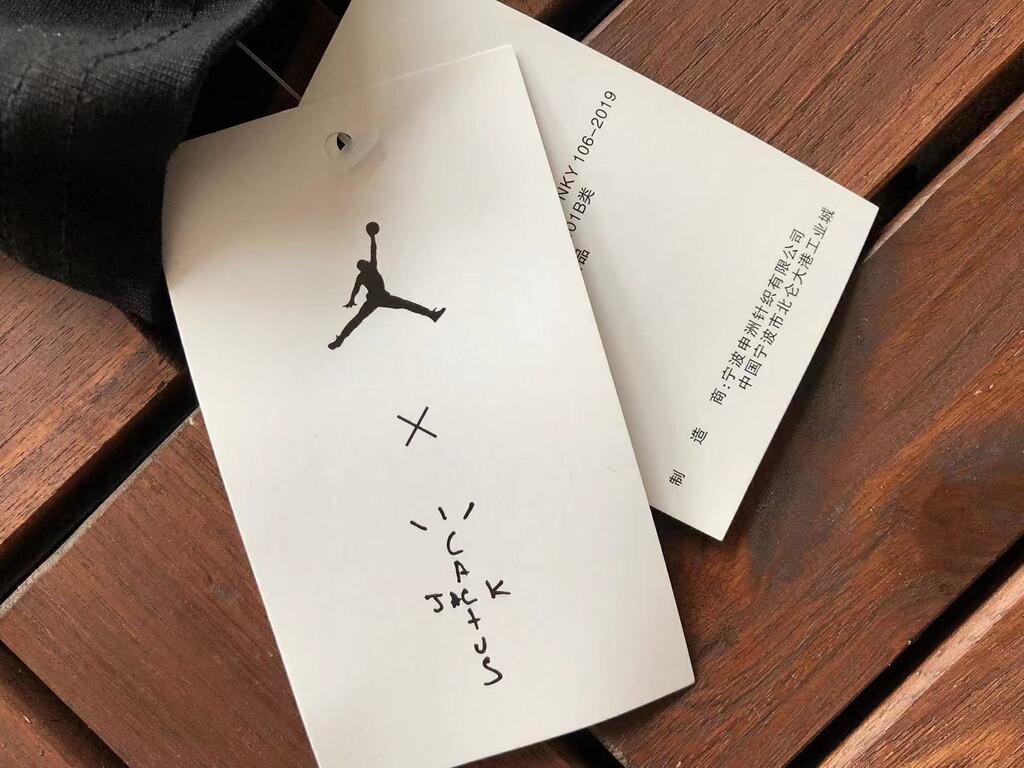 ×
CACTUS
JACK
NKY 106-2019
品 01B类
制 造 商:宁波申洲针织有限公司
中国宁波市北仑大港工业城